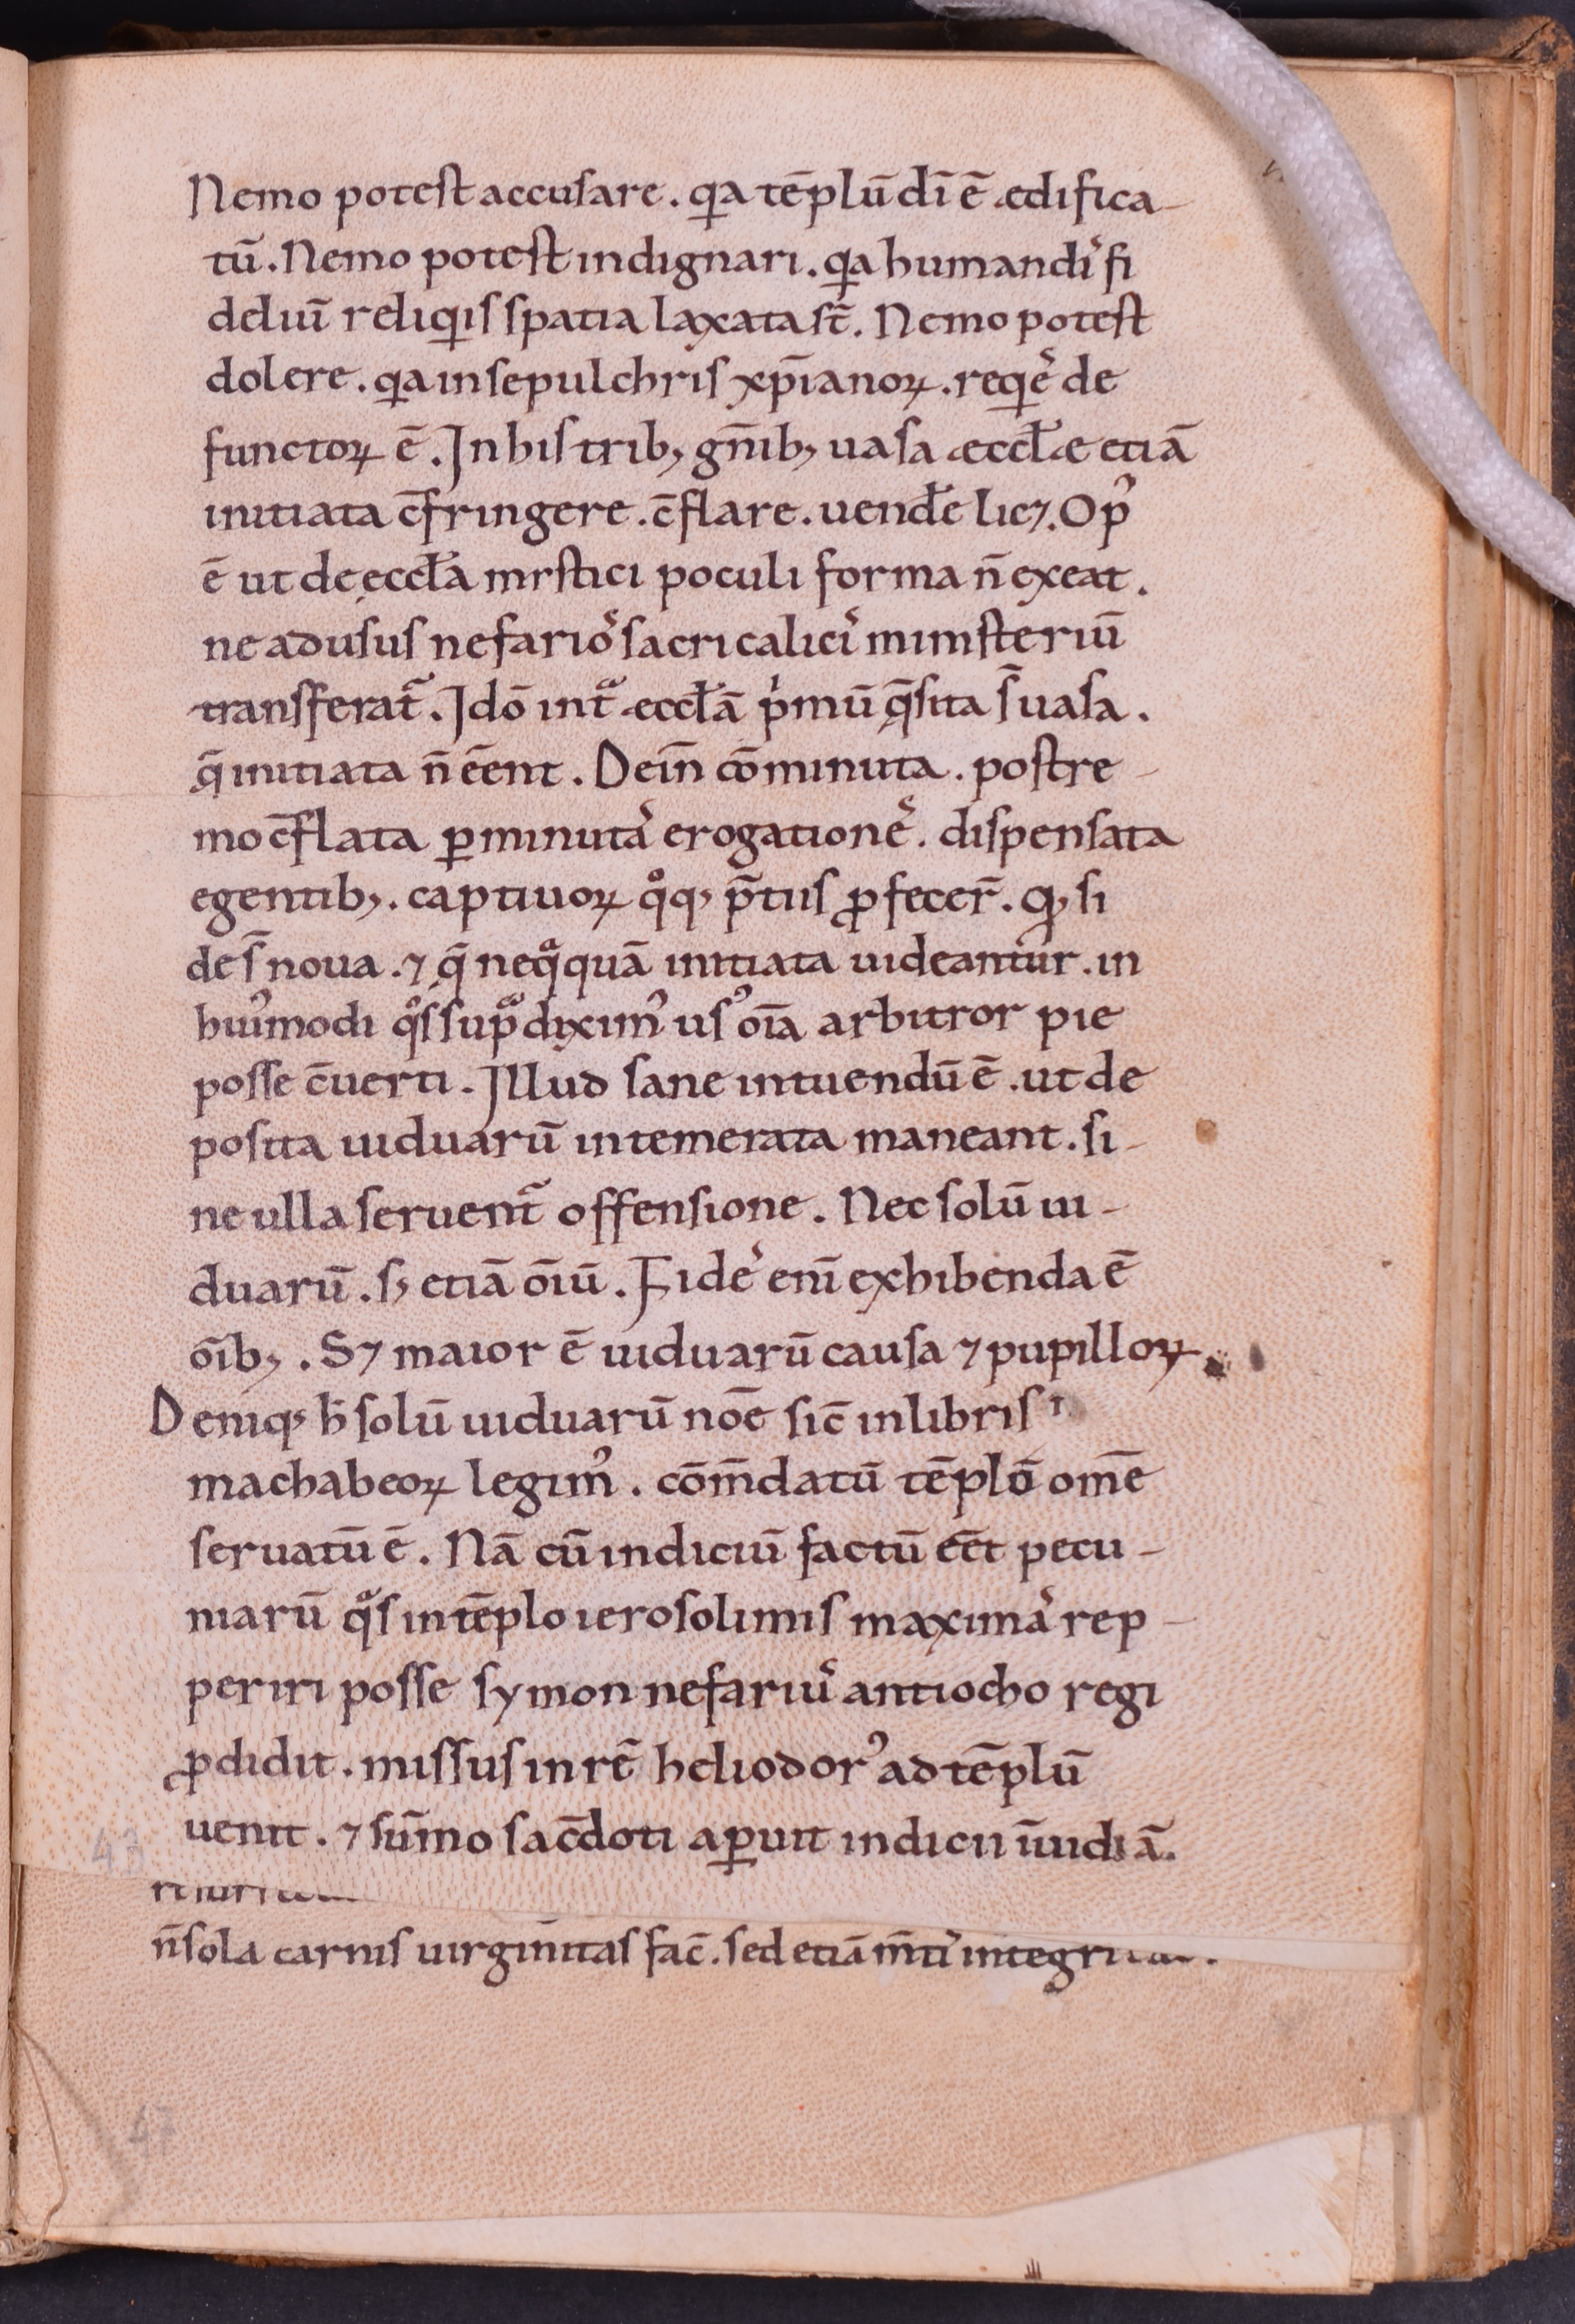 Nemo potest accusare. qa tēplū dī ē ędifica-
tū. Nemo potest indignari. qa humandis fi
deliū reliqis spatia laxata st̄. Nemo potest
dolere. qa in sepulchris xp̄ianoꝝ. reqes de
functoꝝ ē. In his trib; gn̄ib; uasa ęccłę etiā
initiata c̄fringere. c̄flare. uendēe lic&. Opꝰ
ē ut de ęccła mystici poculi forma n̄ exeat.
ne ad usus nefarios sacri calicis ministeriū
transferat̄. Idō int ̄ ęccłā pͥmū q̄sita s̄ uasa.
q̄ initiata n̄ ēent. Dein̄ cōminuta. postre-
mo c̄flata ꝑ minutas erogationes. dispensata
egentib;. captiuoꝝ qͦq; p̄tiis ꝓfecer̄. Qd si
des̄ noua. ⁊ q̄ neqͣquā initiata uideantur. in
huiꝰmodi qͦs supͣ diximꝰ usꝰ oīa arbitror pie
posse c̄uerti. Illud sane intuendū ē. ut de
posita uiduarū intemerata maneant. si-
ne ulla seruent̄ offensione. Nec solū ui-
duarū. s; etiā oīū. Fides enī exhibenda ē
oīb;. S& maior ē uiduarū causa ⁊ pupilloꝝ.
Deniq; h̄ solū uiduarū noē sic̄ in libris
machabeoꝝ legimꝰ. cōm̄datū tēplo om̄e
seruatū ē. Nā cū indiciū factū eēt pecu-
niarū qͣs in tēplo ierosolimis maximas rep-
periri posse symon nefarius antiocho regi
ꝓdidit. missus in rē heliodorꝰ ad tēplū
uenit. ⁊ sūmo sac̄doti aꝑuit indicii īuidiā.
n̄ sola carnis uirginitas fac̄. sed etiā m̄tis
43
47